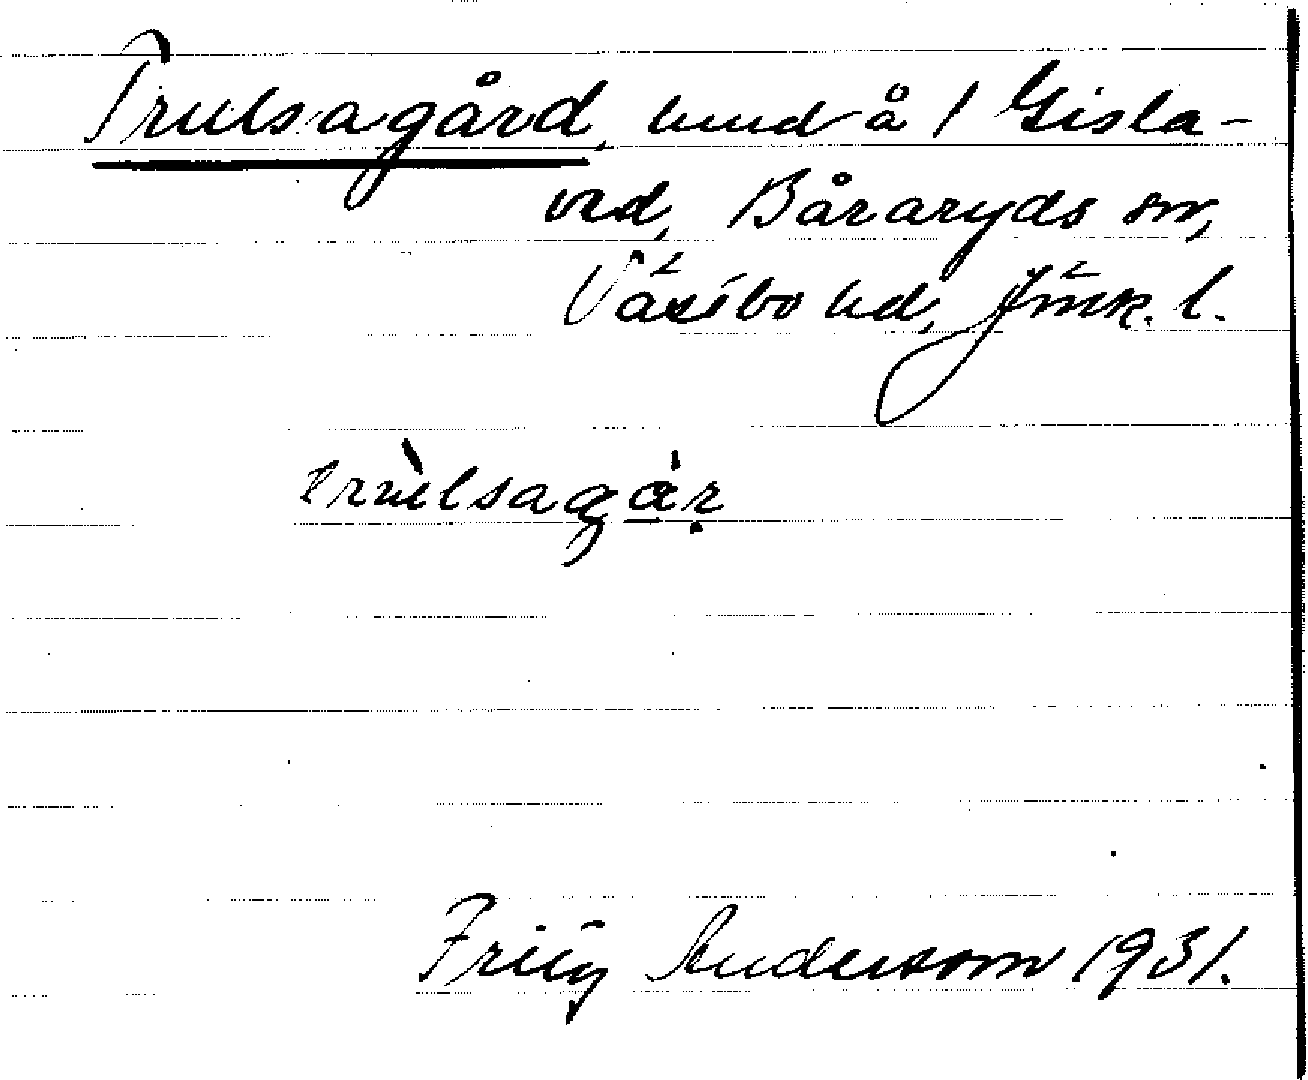 Trulsagård, hmd å 1 Gisla-
ved, Båraryds sn,
Västbo hd, Jönk. l.
trùlsagár
Fritz Andersson 1931.